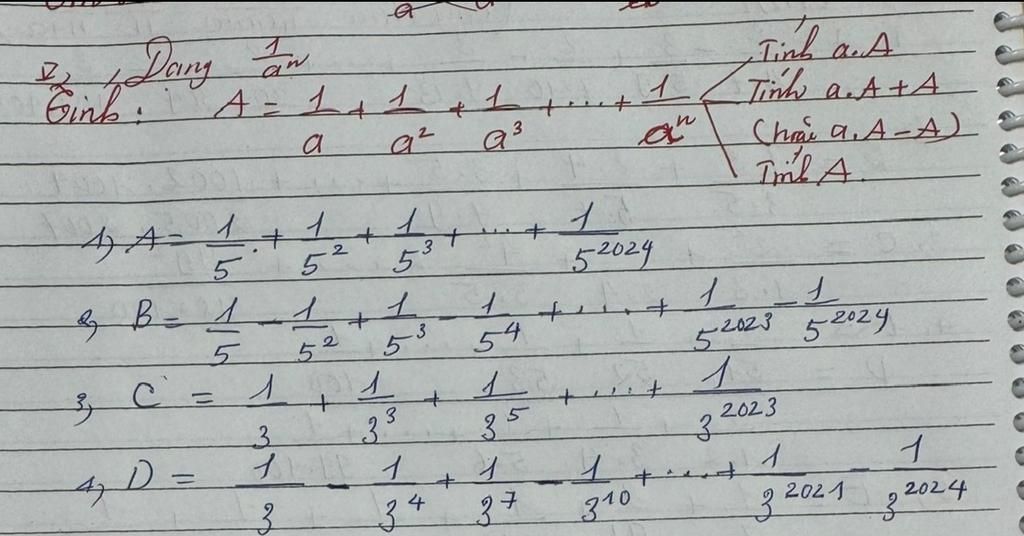 V, Dạng 1/aⁿ
Tính: A = 1/a + 1/a² + 1/a³ + ... + 1/aⁿ
Tính a.A
Tính a.A + A
(hoặc a.A - A)
Tính A.
1, A = 1/5 + 1/5² + 1/5³ + ... + 1/5²⁰²⁴
2, B = 1/5 - 1/5² + 1/5³ - 1/5⁴ + ... + 1/5²⁰²³ - 1/5²⁰²⁴
3, C = 1/3 + 1/3³ + 1/3⁵ + ... + 1/3²⁰²³
4, D = 1/3 - 1/3⁴ + 1/3⁷ - 1/3¹⁰ + ... + 1/3²⁰²¹ - 1/3²⁰²⁴